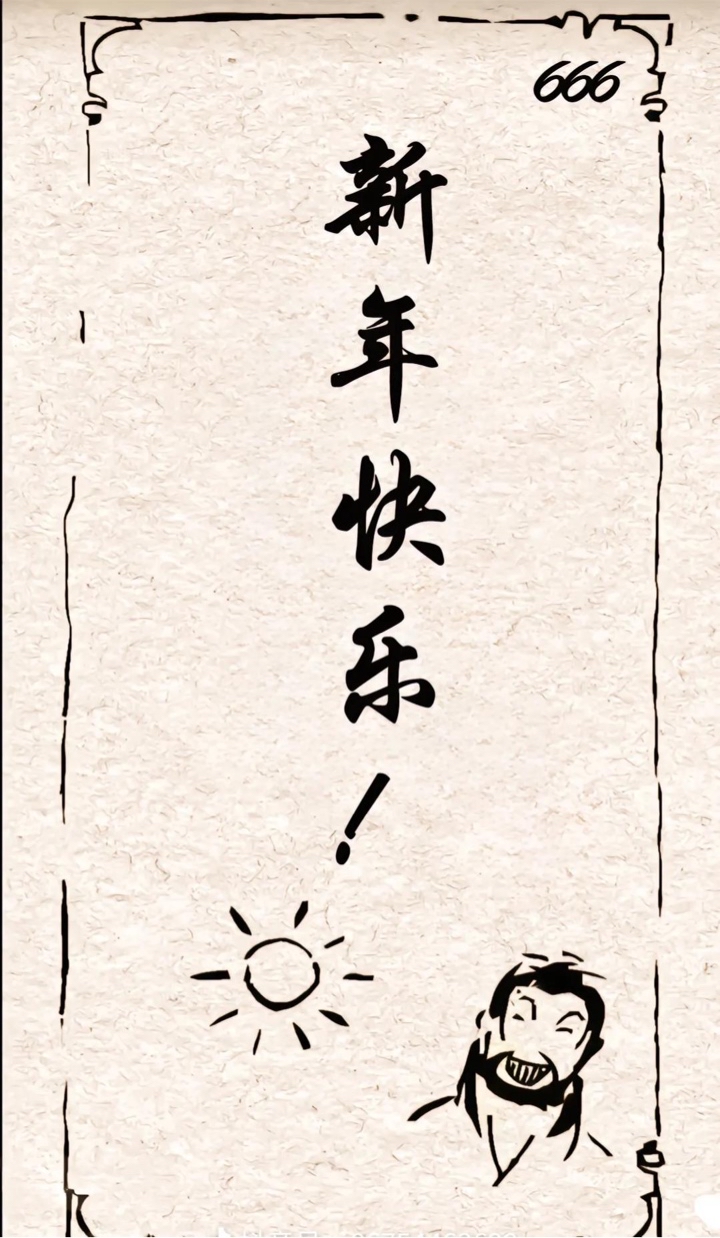 666
新年快乐！